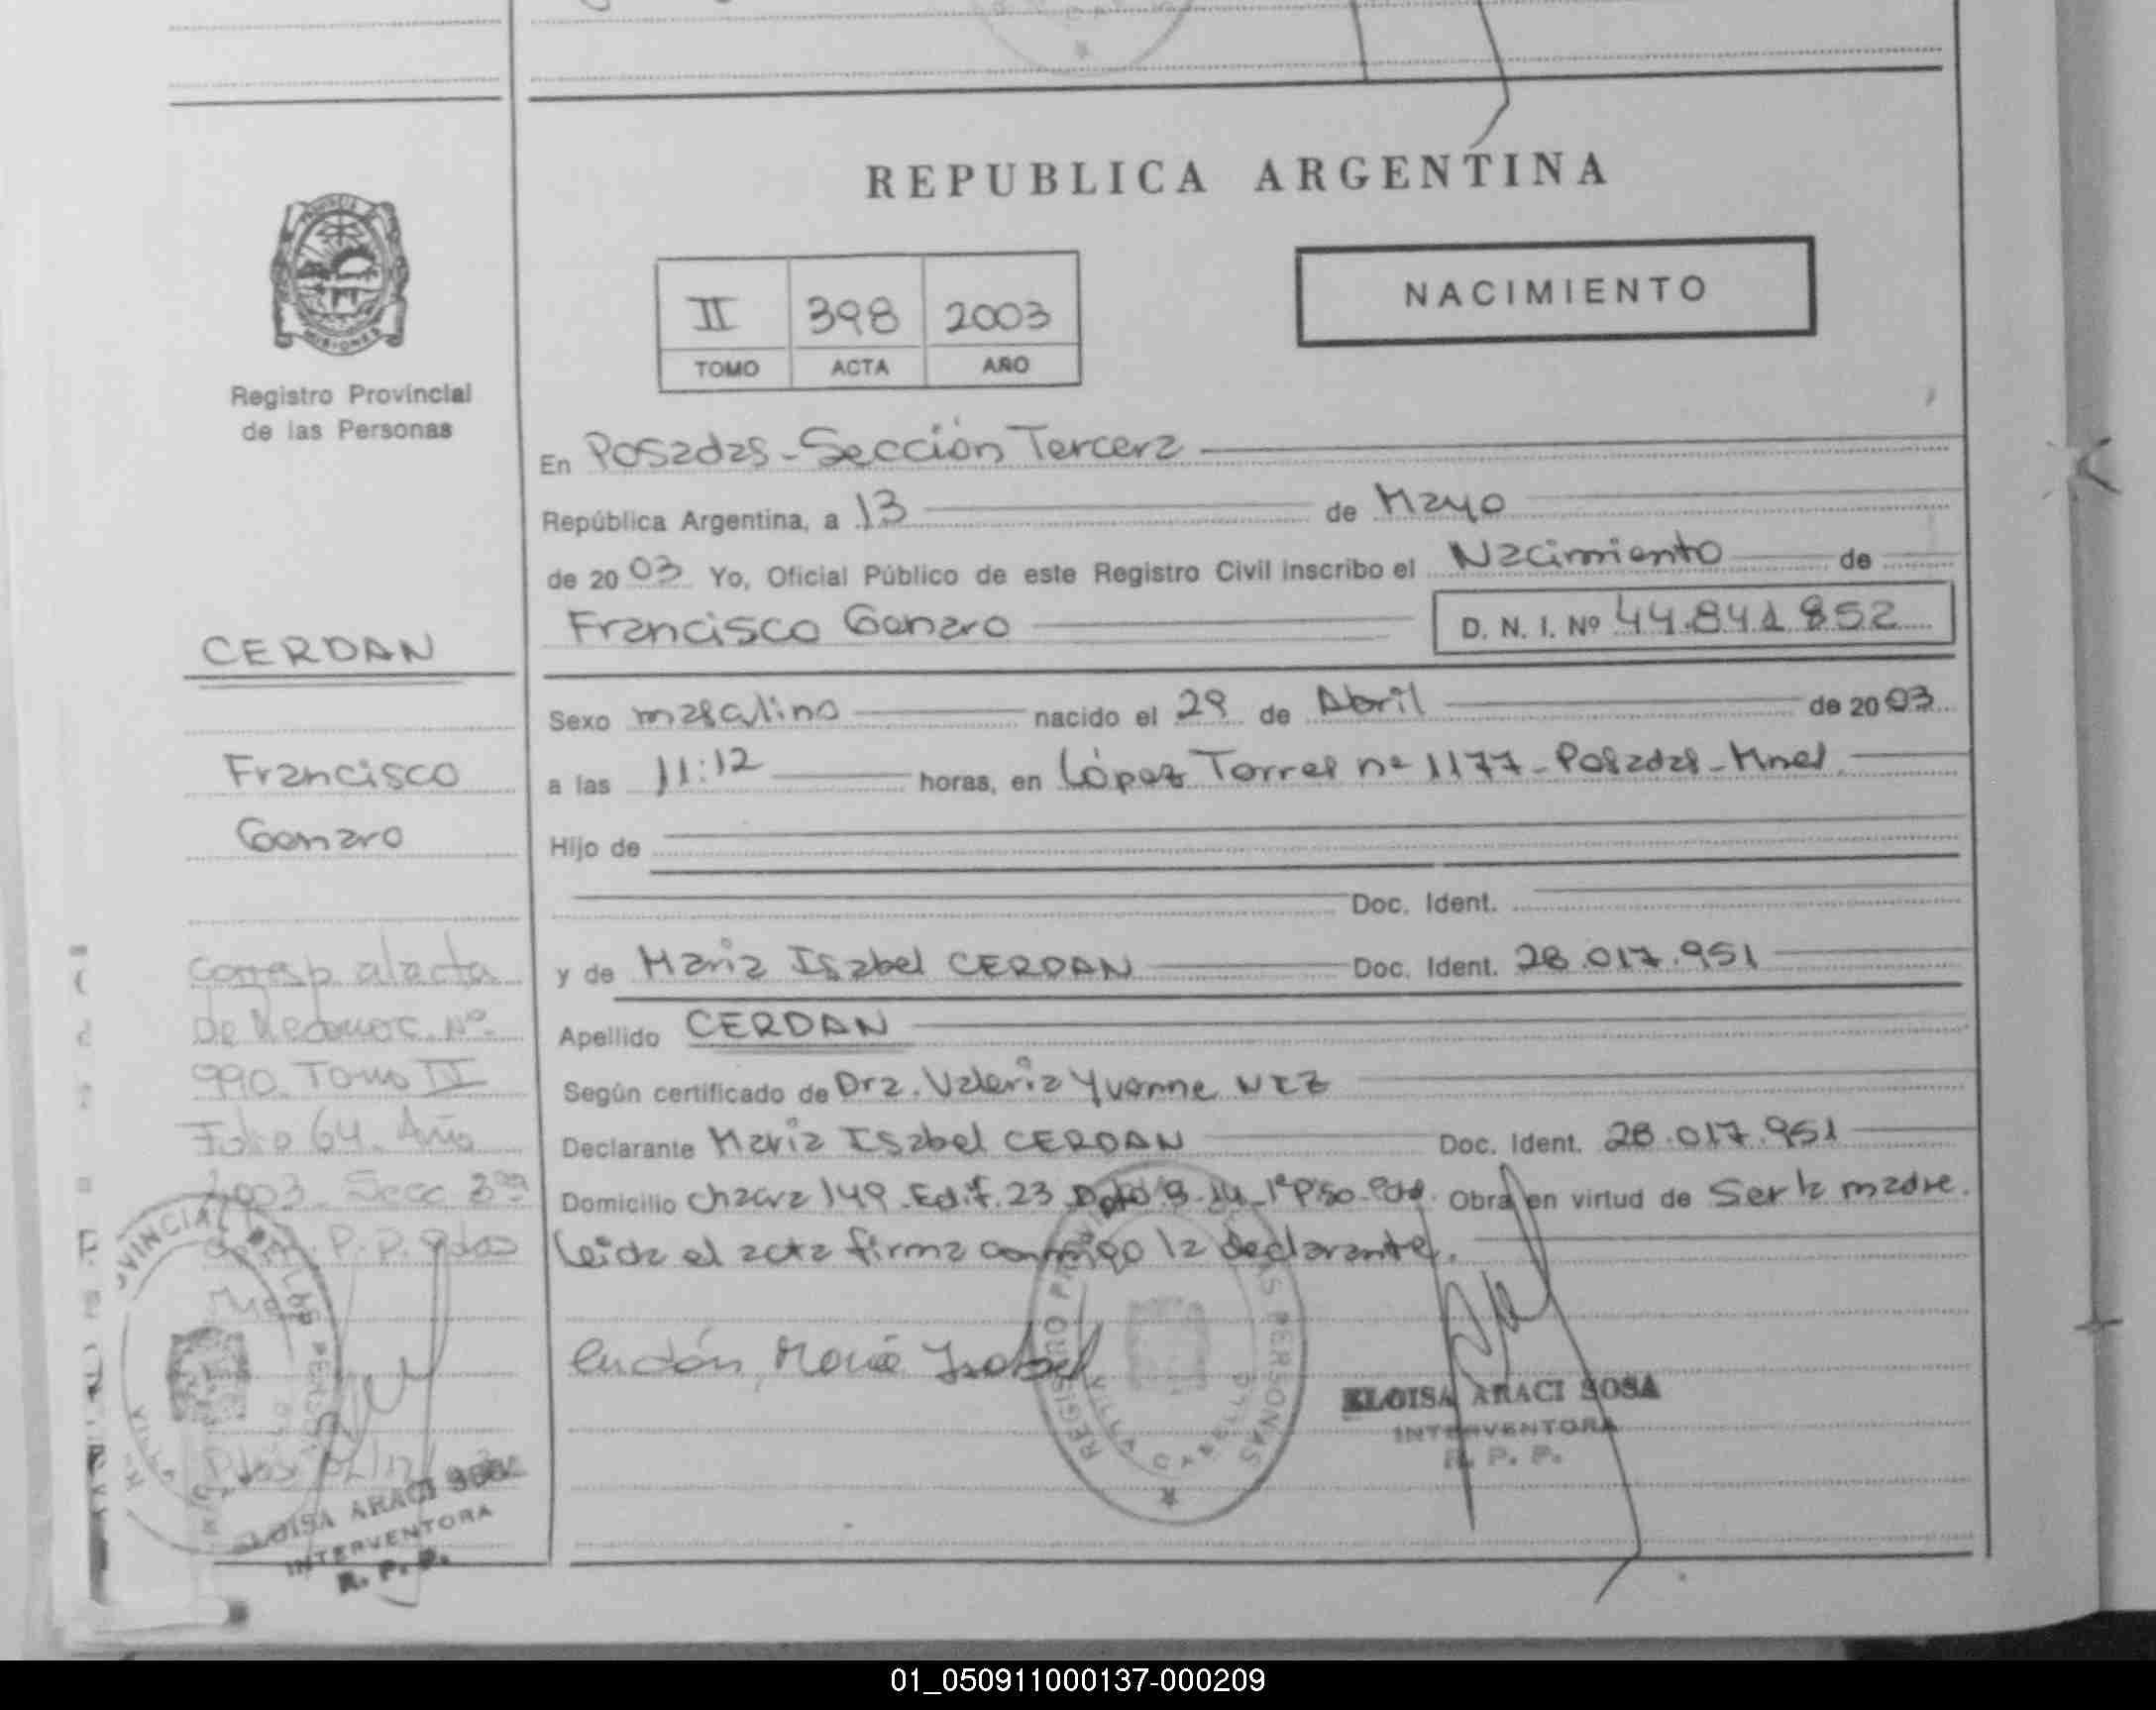 REPUBLICA ARGENTINA
NACIMIENTO
II 398 2003
TOMO ACTA AÑO
PROVINCIA DE
MISIONES
Registro Provincial
de las Personas
En Posadas - Sección Tercera
República Argentina, a 13 de Mayo
de 2003 Yo, Oficial Público de este Registro Civil inscribo el Nacimiento de
Francisco Genaro D. N. I. Nº 44.841.852
CERDAN
Francisco
Genaro
Sexo masculino nacido el 29 de Abril de 2003
a las 11:12 horas, en López Torres nº 1177 - Posadas - Mnes
Hijo de
Doc. Ident.
y de Maria Isabel CERDAN Doc. Ident. 28.017.951
Apellido CERDAN
Según certificado de Dra. Valeria Yvonne NEZ
Declarante Maria Isabel CERDAN Doc. Ident. 28.017.951
Domicilio Chacra 149 - Edif. 23 1º Piso - Pdas. Obra en virtud de Ser la madre.
Leida el acta firma conmigo la declarante.
Cerdán, María Isabel
REGISTRO PROVINCIAL DE LAS PERSONAS
VILLA CABELLO
ELOISA ARACI SOSA
INTERVENTORA
R. P. P.
Corresp. al acta
De Reconoc. Nº
990. Tomo IV
Folio 64. Año
2003. Secc 3ra
R.P.P. Pdas
ELOISA ARACI SOSA
INTERVENTORA
R. P. P.
01_050911000137-000209